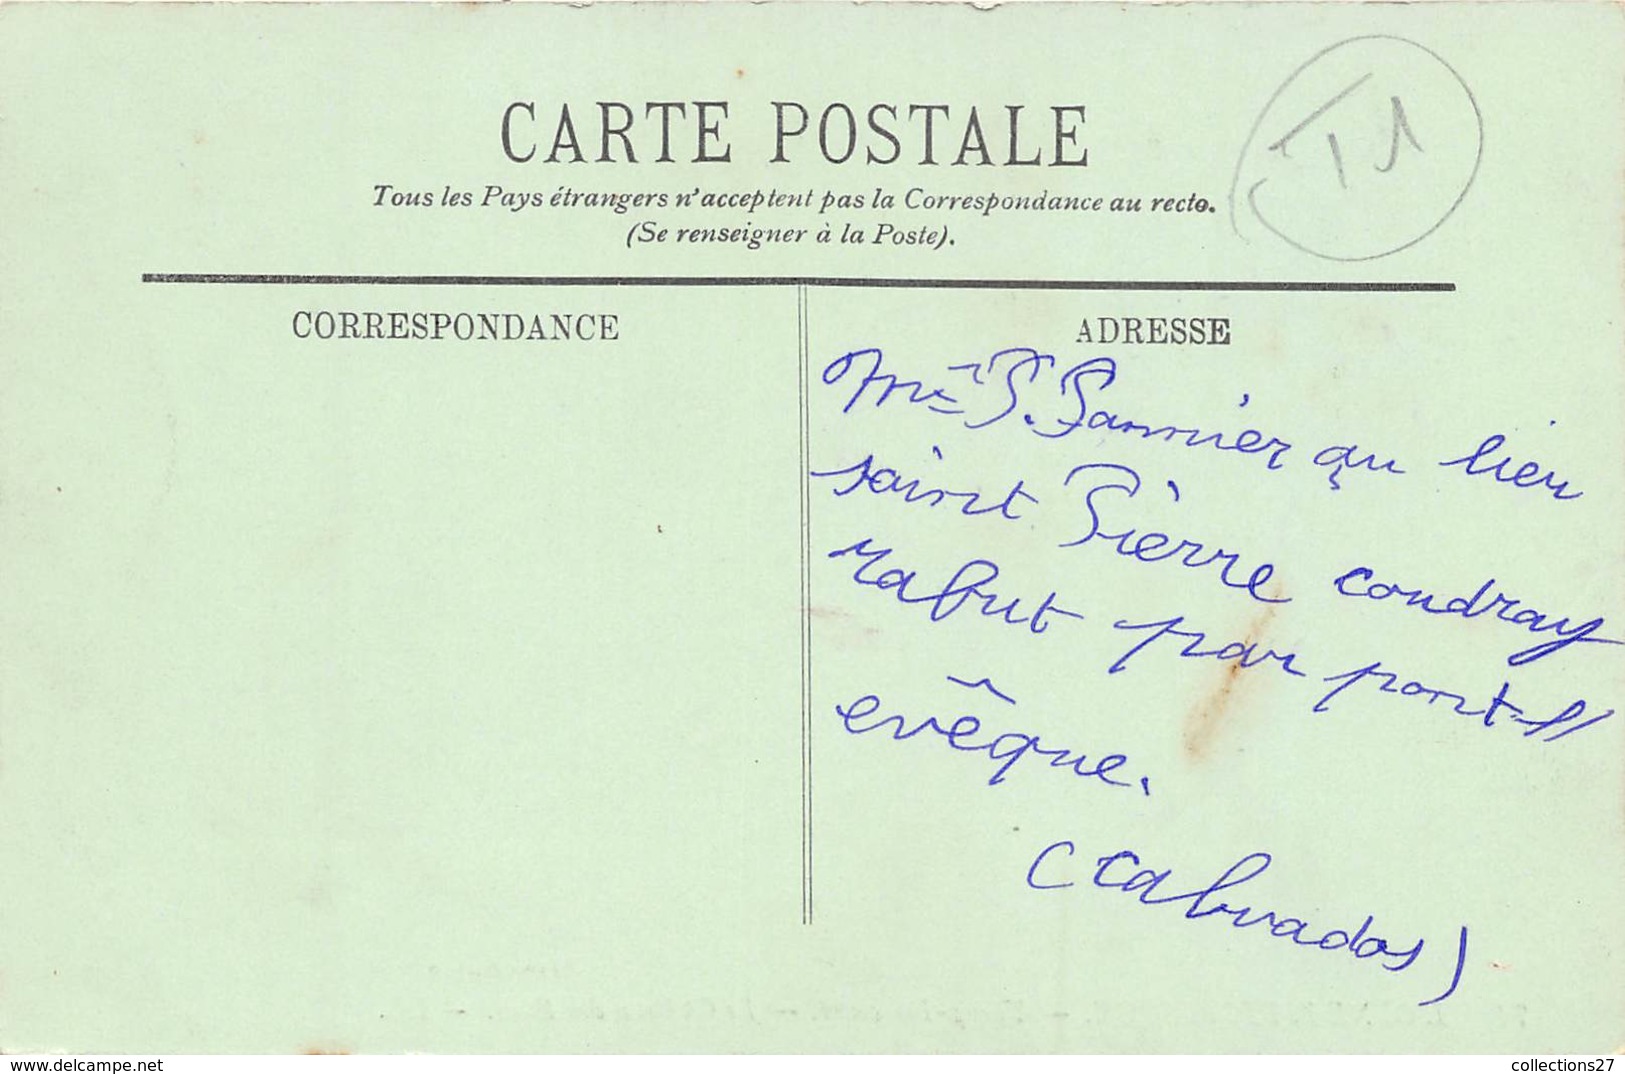 CARTE POSTALE
Tous les Pays étrangers n'acceptent pas la Correspondance au recto.
(Se renseigner à la Poste).
CORRESPONDANCE
ADRESSE
P. au lieu
saint Pierre coudray
rabut par pont-l'
evêque.
(calvados)
delcampe.net
collections27